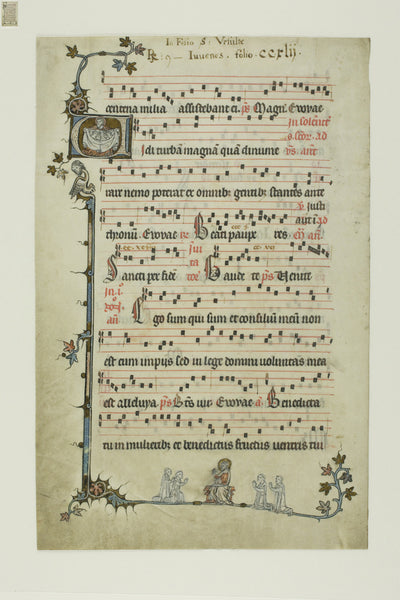 In Festo S. Ursulæ
℟: 9 — Iuvenes. folio. ccxlij.
centena milia assistebant ei. ps Magn. Evovae.
In solen
s. ad
idi turbam magnam quam dinume vs. ant
rare nemo poterat ex omnibus gentibus stantes ante
v. Justi
thronum. Evovae. Beati paupe res
Sancti per fidē Gaude te ps Venite
Ego sum qui sum et consilium meum non
est cum impiis sed in lege domini voluntas mea
est alleluya. ps Evovae. a. Benedicta
tu in mulieribus et benedictus fructus ventris tui